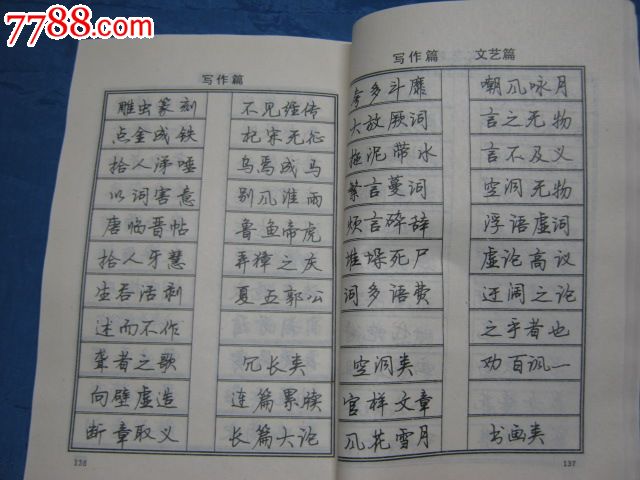 7788.com
写作篇
雕虫篆刻
点金成铁
拾人涕唾
以词害意
唐临晋帖
拾人牙慧
生吞活剥
述而不作
聋者之歌
向壁虚造
断章取义
不见经传
杞宋无征
乌焉成马
别风淮雨
鲁鱼帝虎
弄獐之庆
夏五郭公
冗长类
连篇累牍
长篇大论
136
写作篇 文艺篇
夸多斗靡
大放厥词
拖泥带水
繁言蔓词
烦言碎辞
堆垛死尸
词多语费
空洞类
官样文章
风花雪月
嘲风咏月
言之无物
言不及义
空洞无物
浮语虚词
虚论高议
迂阔之论
之乎者也
劝百讽一
书画类
137